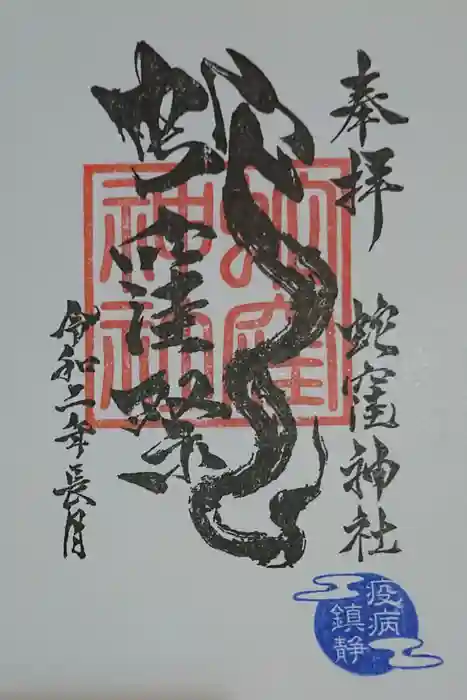 奉拝
蛇窪神社
蛇窪祭
令和二年長月
疫病
鎮静